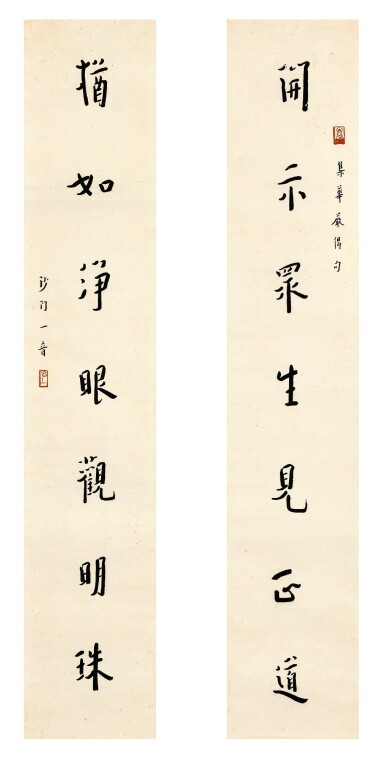 開示眾生見正道
集華嚴偈句
猶如淨眼觀明珠
沙門一音